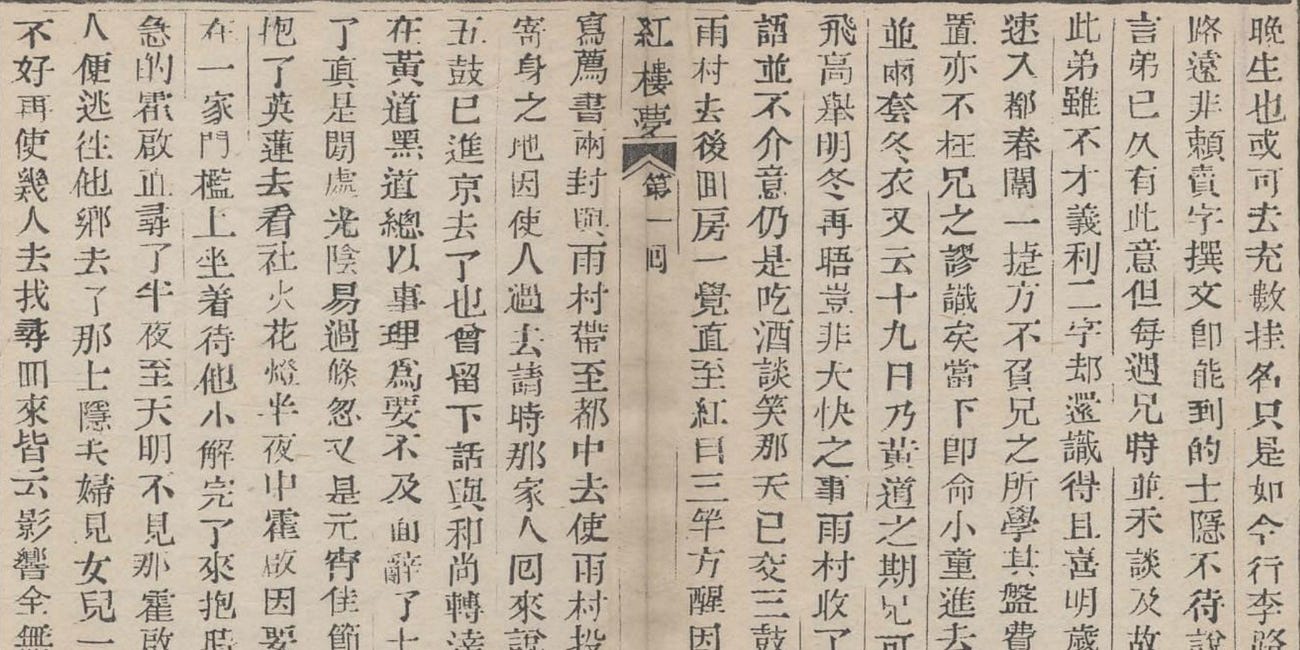 晚生也或可去充數挂名只是如今行李路
路遠非賴賣字撰文卽能到的士隱不待說
言弟已久有此意但每遇兄時並未談及故
此弟雖不才義利二字却還識得且喜明歲
速入都春闈一捷方不負兄之所學其盤費
置亦不枉兄之謬識矣當下卽命小童進去
並兩套冬衣又云十九日乃黃道之期兄可
飛高舉明冬再晤豈非大快之事雨村收了
語並不介意仍是吃酒談笑那天已交三鼓
雨村去後回房一覺直至紅日三竿方醒因
紅樓夢 第一回
寫薦書兩封與雨村帶至都中去使雨村投
寄身之地因使人過去請時那家人囘來說
五鼓已進京去了也曾留下話與和尚轉達
在黃道黑道總以事理爲要不及面辭了士
了真是閒處光陰易過倏忽又是元宵佳節
抱了英蓮去看社火花燈半夜中霍啟因要
在一家門檻上坐着待他小解完了來抱時
急的霍啟直尋了半夜至天明不見那霍啟
人便逃往他鄉去了那士隱夫婦見女兒一
不好再使幾人去找尋回來皆云影響全無